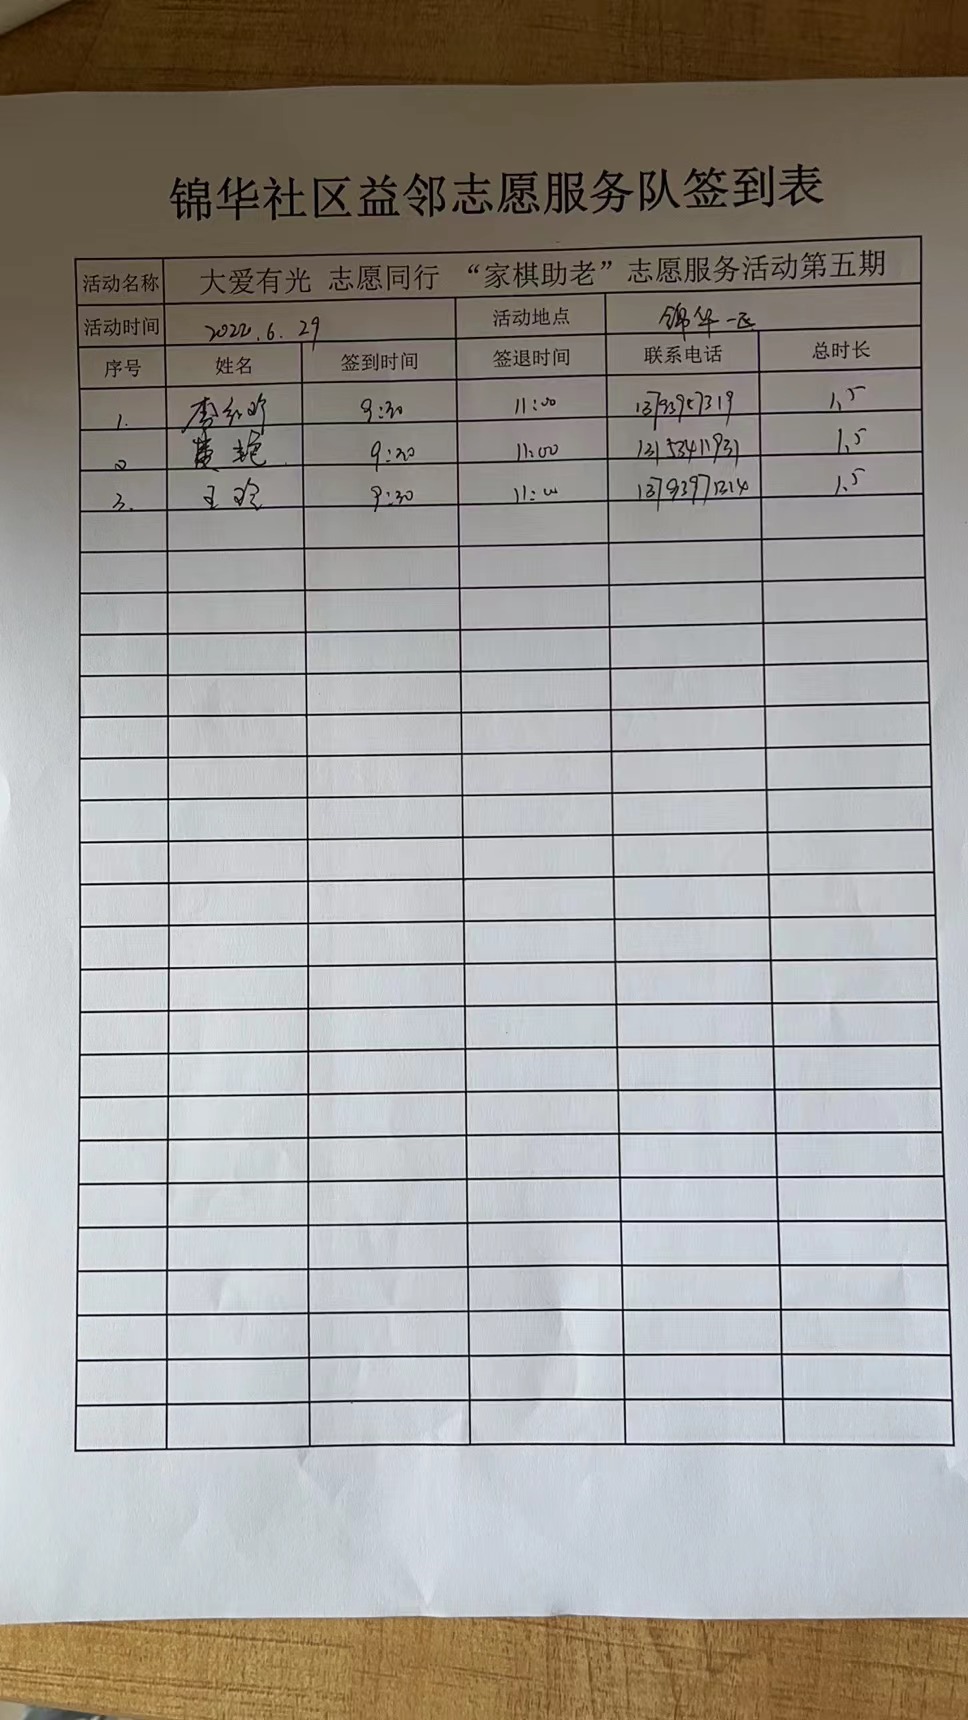 锦华社区益邻志愿服务队签到表
活动名称 大爱有光 志愿同行 “家棋助老”志愿服务活动第五期
活动时间 2022.6.29 活动地点 锦华一区
序号 姓名 签到时间 签退时间 联系电话 总时长
1. 9:30 11:00 1.5
2 黄艳 9:30 11:00 13153411931 1.5
3. 王玲 9:30 11:00 13793971314 1.5